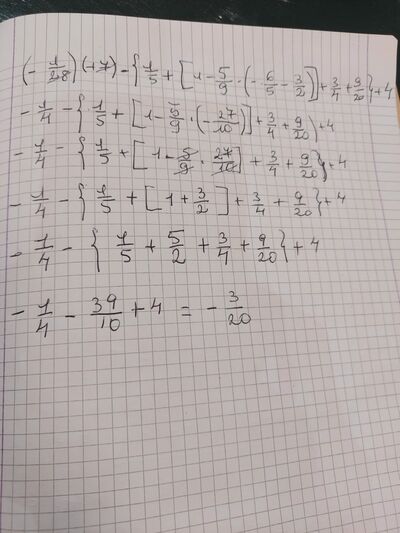 (- 1/28)(+7) - {1/5 + [1 - 5/9 · (- 6/5 - 3/2)] + 3/4 + 9/20} + 4
- 1/4 - {1/5 + [1 - 5/9 · (- 27/10)] + 3/4 + 9/20} + 4
- 1/4 - {1/5 + [1 - 5/9 · 27/10] + 3/4 + 9/20} + 4
- 1/4 - {1/5 + [1 + 3/2] + 3/4 + 9/20} + 4
- 1/4 - {1/5 + 5/2 + 3/4 + 9/20} + 4
- 1/4 - 39/10 + 4 = - 3/20